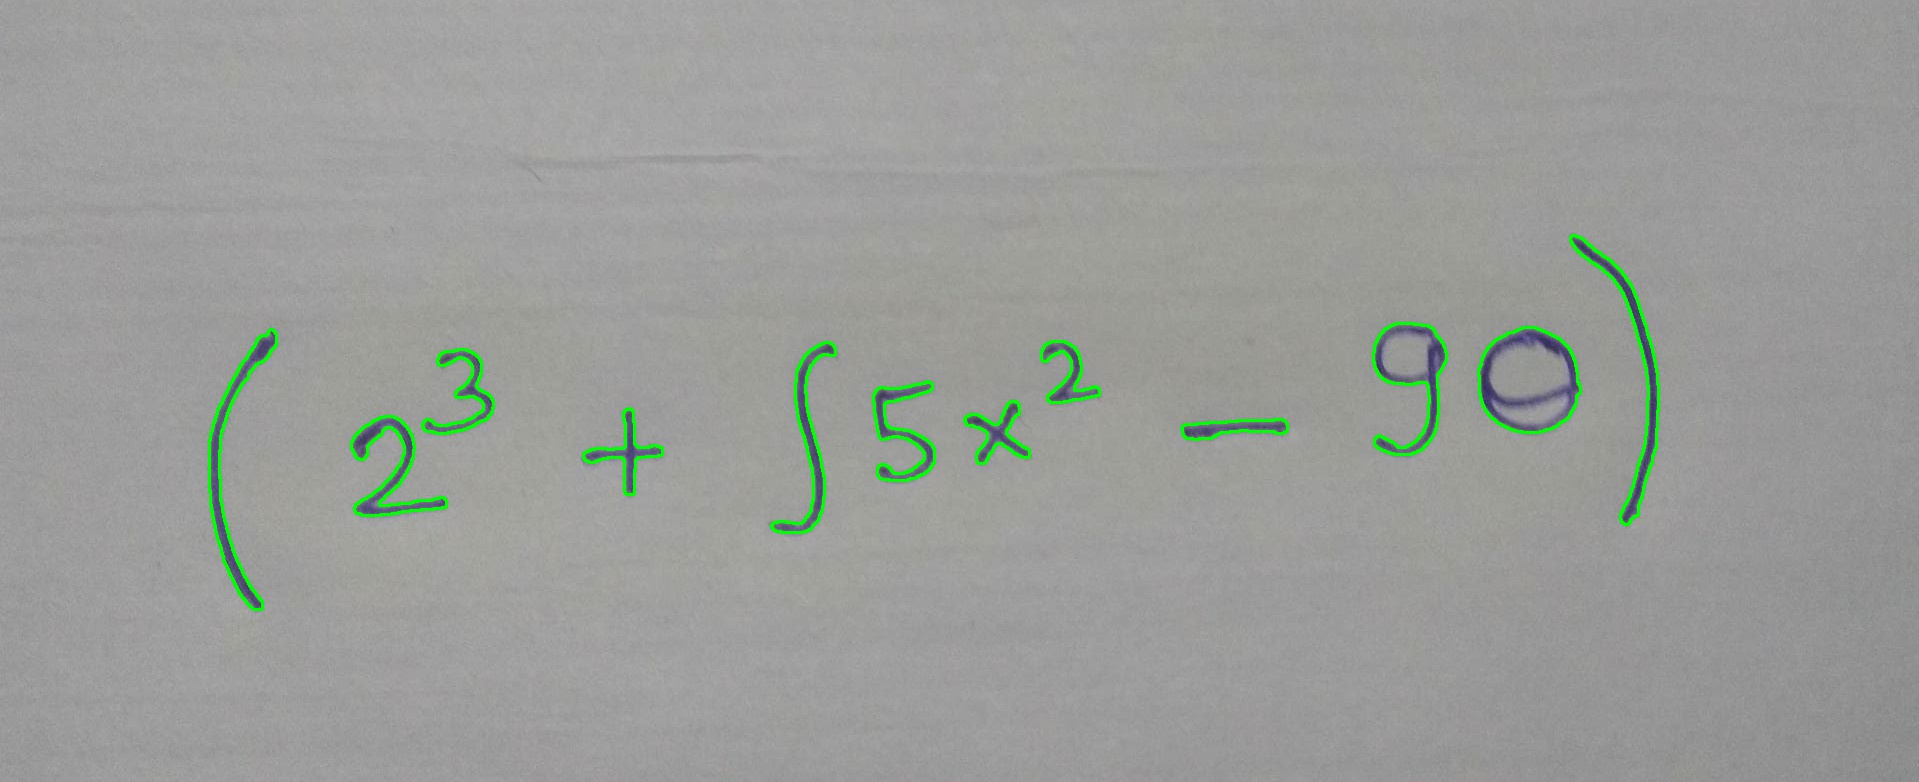 (2³ + ∫5x² − 9θ)